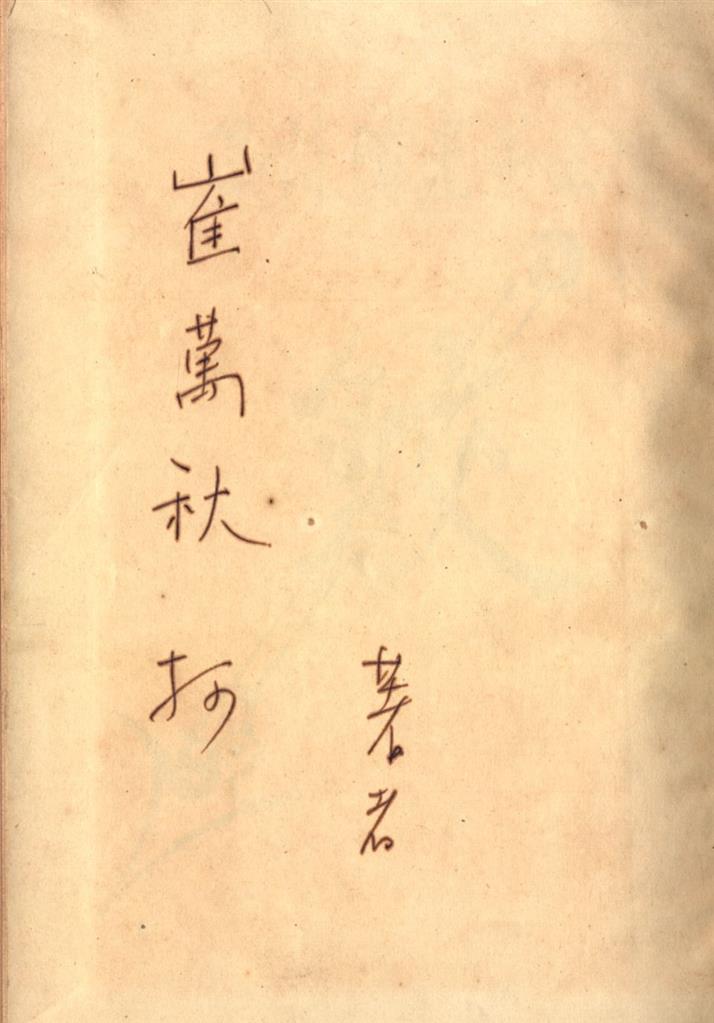 著者
崔萬秋